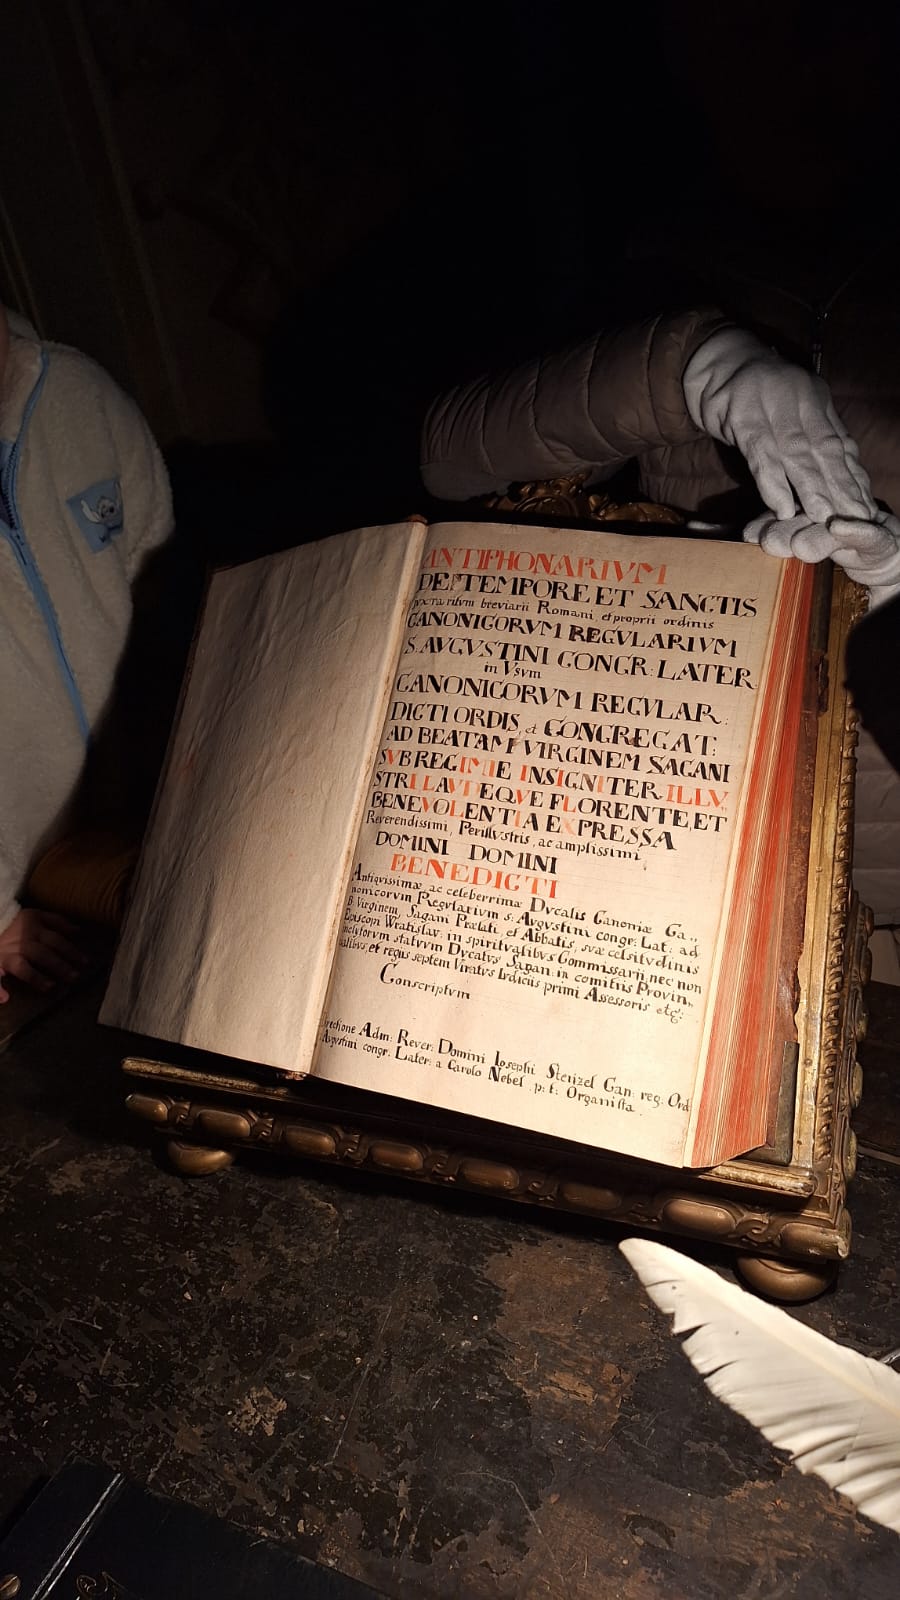 ANTIPHONARIVM
DE TEMPORE ET SANCTIS
juxta ritum breviarii Romani, et proprii ordinis
CANONICORVM REGVLARIVM
S. AVGVSTINI CONGR: LATER.
in Vsvm
CANONICORVM REGVLAR:
DICTI ORDIS, et CONGREGAT:
AD BEATAM VIRGINEM SAGANI
SVB REGIMIE INSIGNITER ILLV,
STRI LAVDEQVE FLORENTE, ET
BENEVOLENTIA EXPRESSA
Reverendissimi, Perillvstris, ac amplissimi
DOMINI DOMINI
BENEDICTI
Antiqvissimæ ac celeberrimæ Dvcalis Canoniæ Ca,,
nonicorvm Regvlarivm s: Avgvstini congr: Lat: ad
B: Virginem, Sagani Prælati, et Abbatis, svæ celsitvdinis
Episcopi Wratislav: in spiritvalibvs Commissarii, nec non
inclytorvm statvvm Dvcatvs Sagan: in comitiis Provin,,
cialibvs, et regiis septem Viratvs Ivdiciis primi Assessoris etc:
Conscriptvm
Directione Adm: Rever: Domini Iosephi Stenzel Can: reg: Ord:
Avgvstini congr: Later: a Carolo Nebel p: t: Organista.